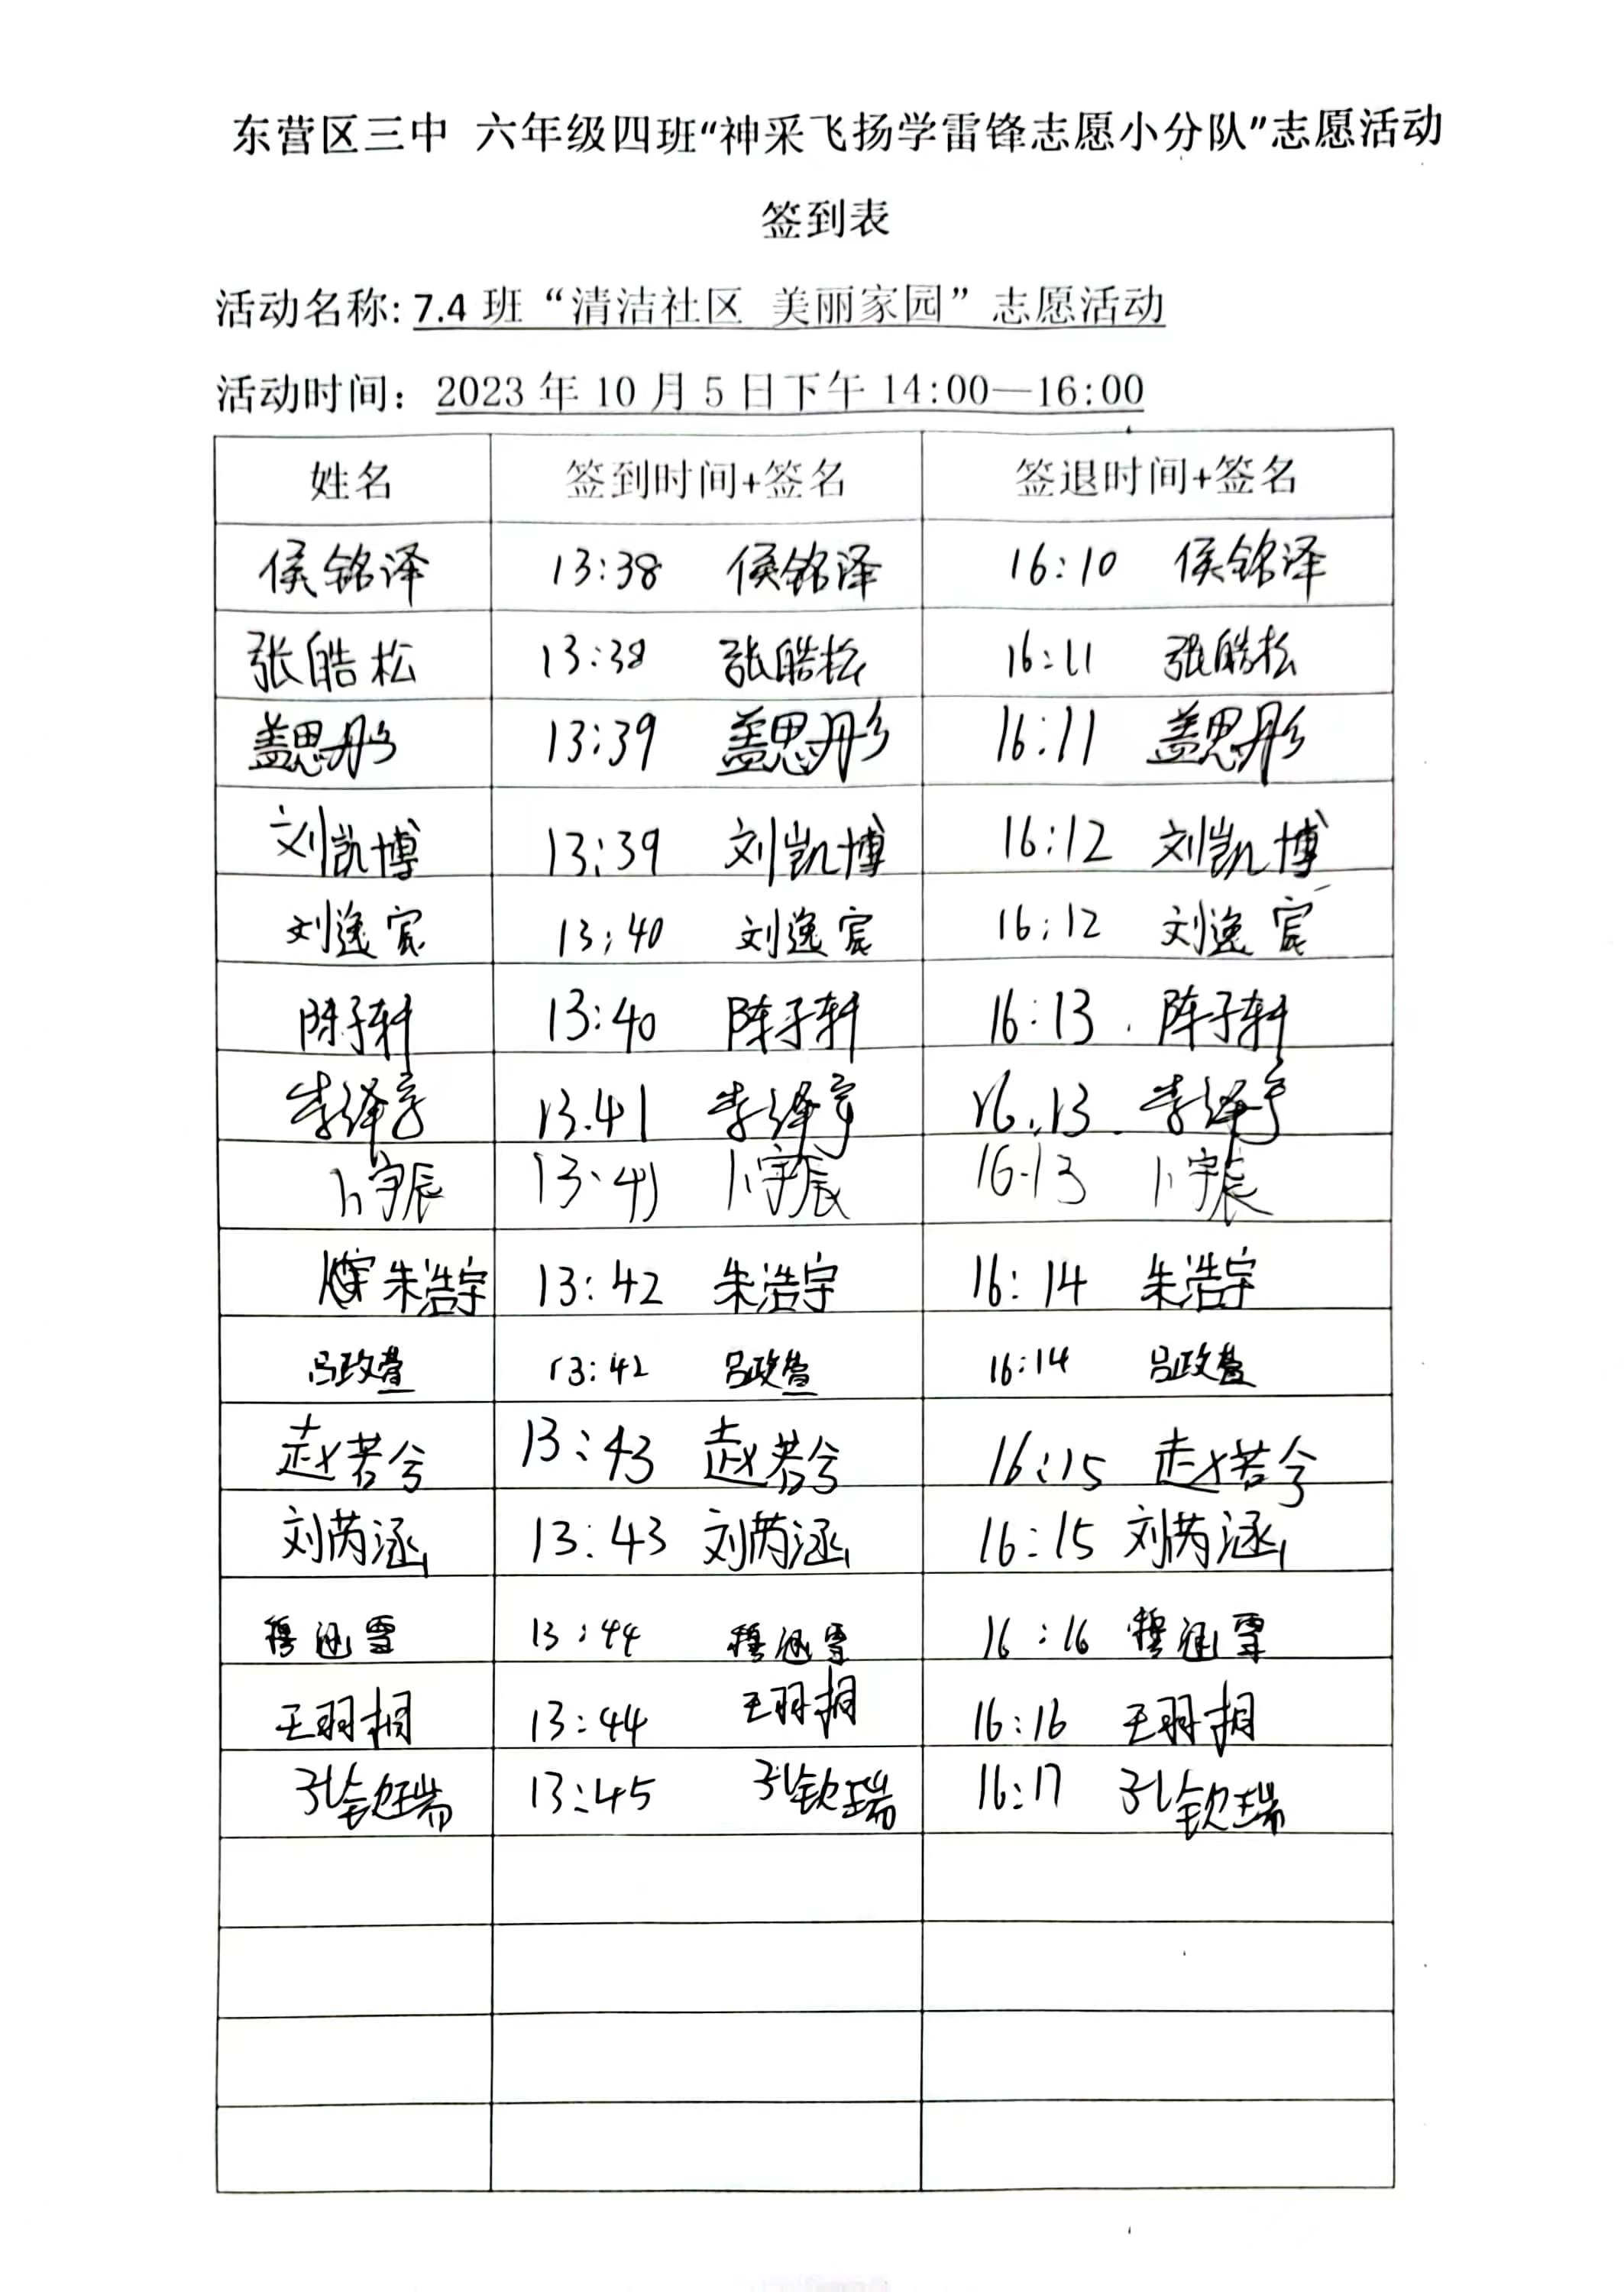 东营区三中 六年级四班“神采飞扬学雷锋志愿小分队”志愿活动
签到表
活动名称: 7.4 班“清洁社区 美丽家园”志愿活动
活动时间：2023 年 10 月 5 日下午 14:00—16:00
姓名 签到时间+签名 签退时间+签名
侯铭泽 13:38 侯铭泽 16:10 侯铭泽
张皓松 13:38 张皓松 16:11 张皓松
盖思彤 13:39 盖思彤 16:11 盖思彤
刘凯博 13:39 刘凯博 16:12 刘凯博
刘逸宸 13:40 刘逸宸 16:12 刘逸宸
陈子轩 13:40 陈子轩 16:13 陈子轩
李绎亭 13.41 李绎亭 16.13 李绎亭
卜宇辰 13:41 卜宇辰 16:13 卜宇辰
朱浩宇 13:42 朱浩宇 16:14 朱浩宇
吕政萱 13:42 吕政萱 16:14 吕政萱
赵若兮 13:43 赵若兮 16:15 赵若兮
刘芮涵 13:43 刘芮涵 16:15 刘芮涵
穆涵雪 13:44 穆涵雪 16:16 穆涵雪
王羽桐 13:44 王羽桐 16:16 王羽桐
孔钦瑞 13:45 孔钦瑞 16:17 孔钦瑞